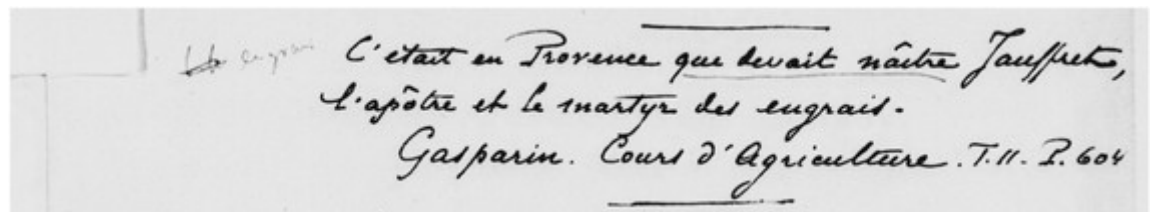 engrais
C'était en Provence que devait nâitre Jauffret,
l'apôtre et le martyr des engrais.
Gasparin. Cours d'Agriculture. T.II. P. 604